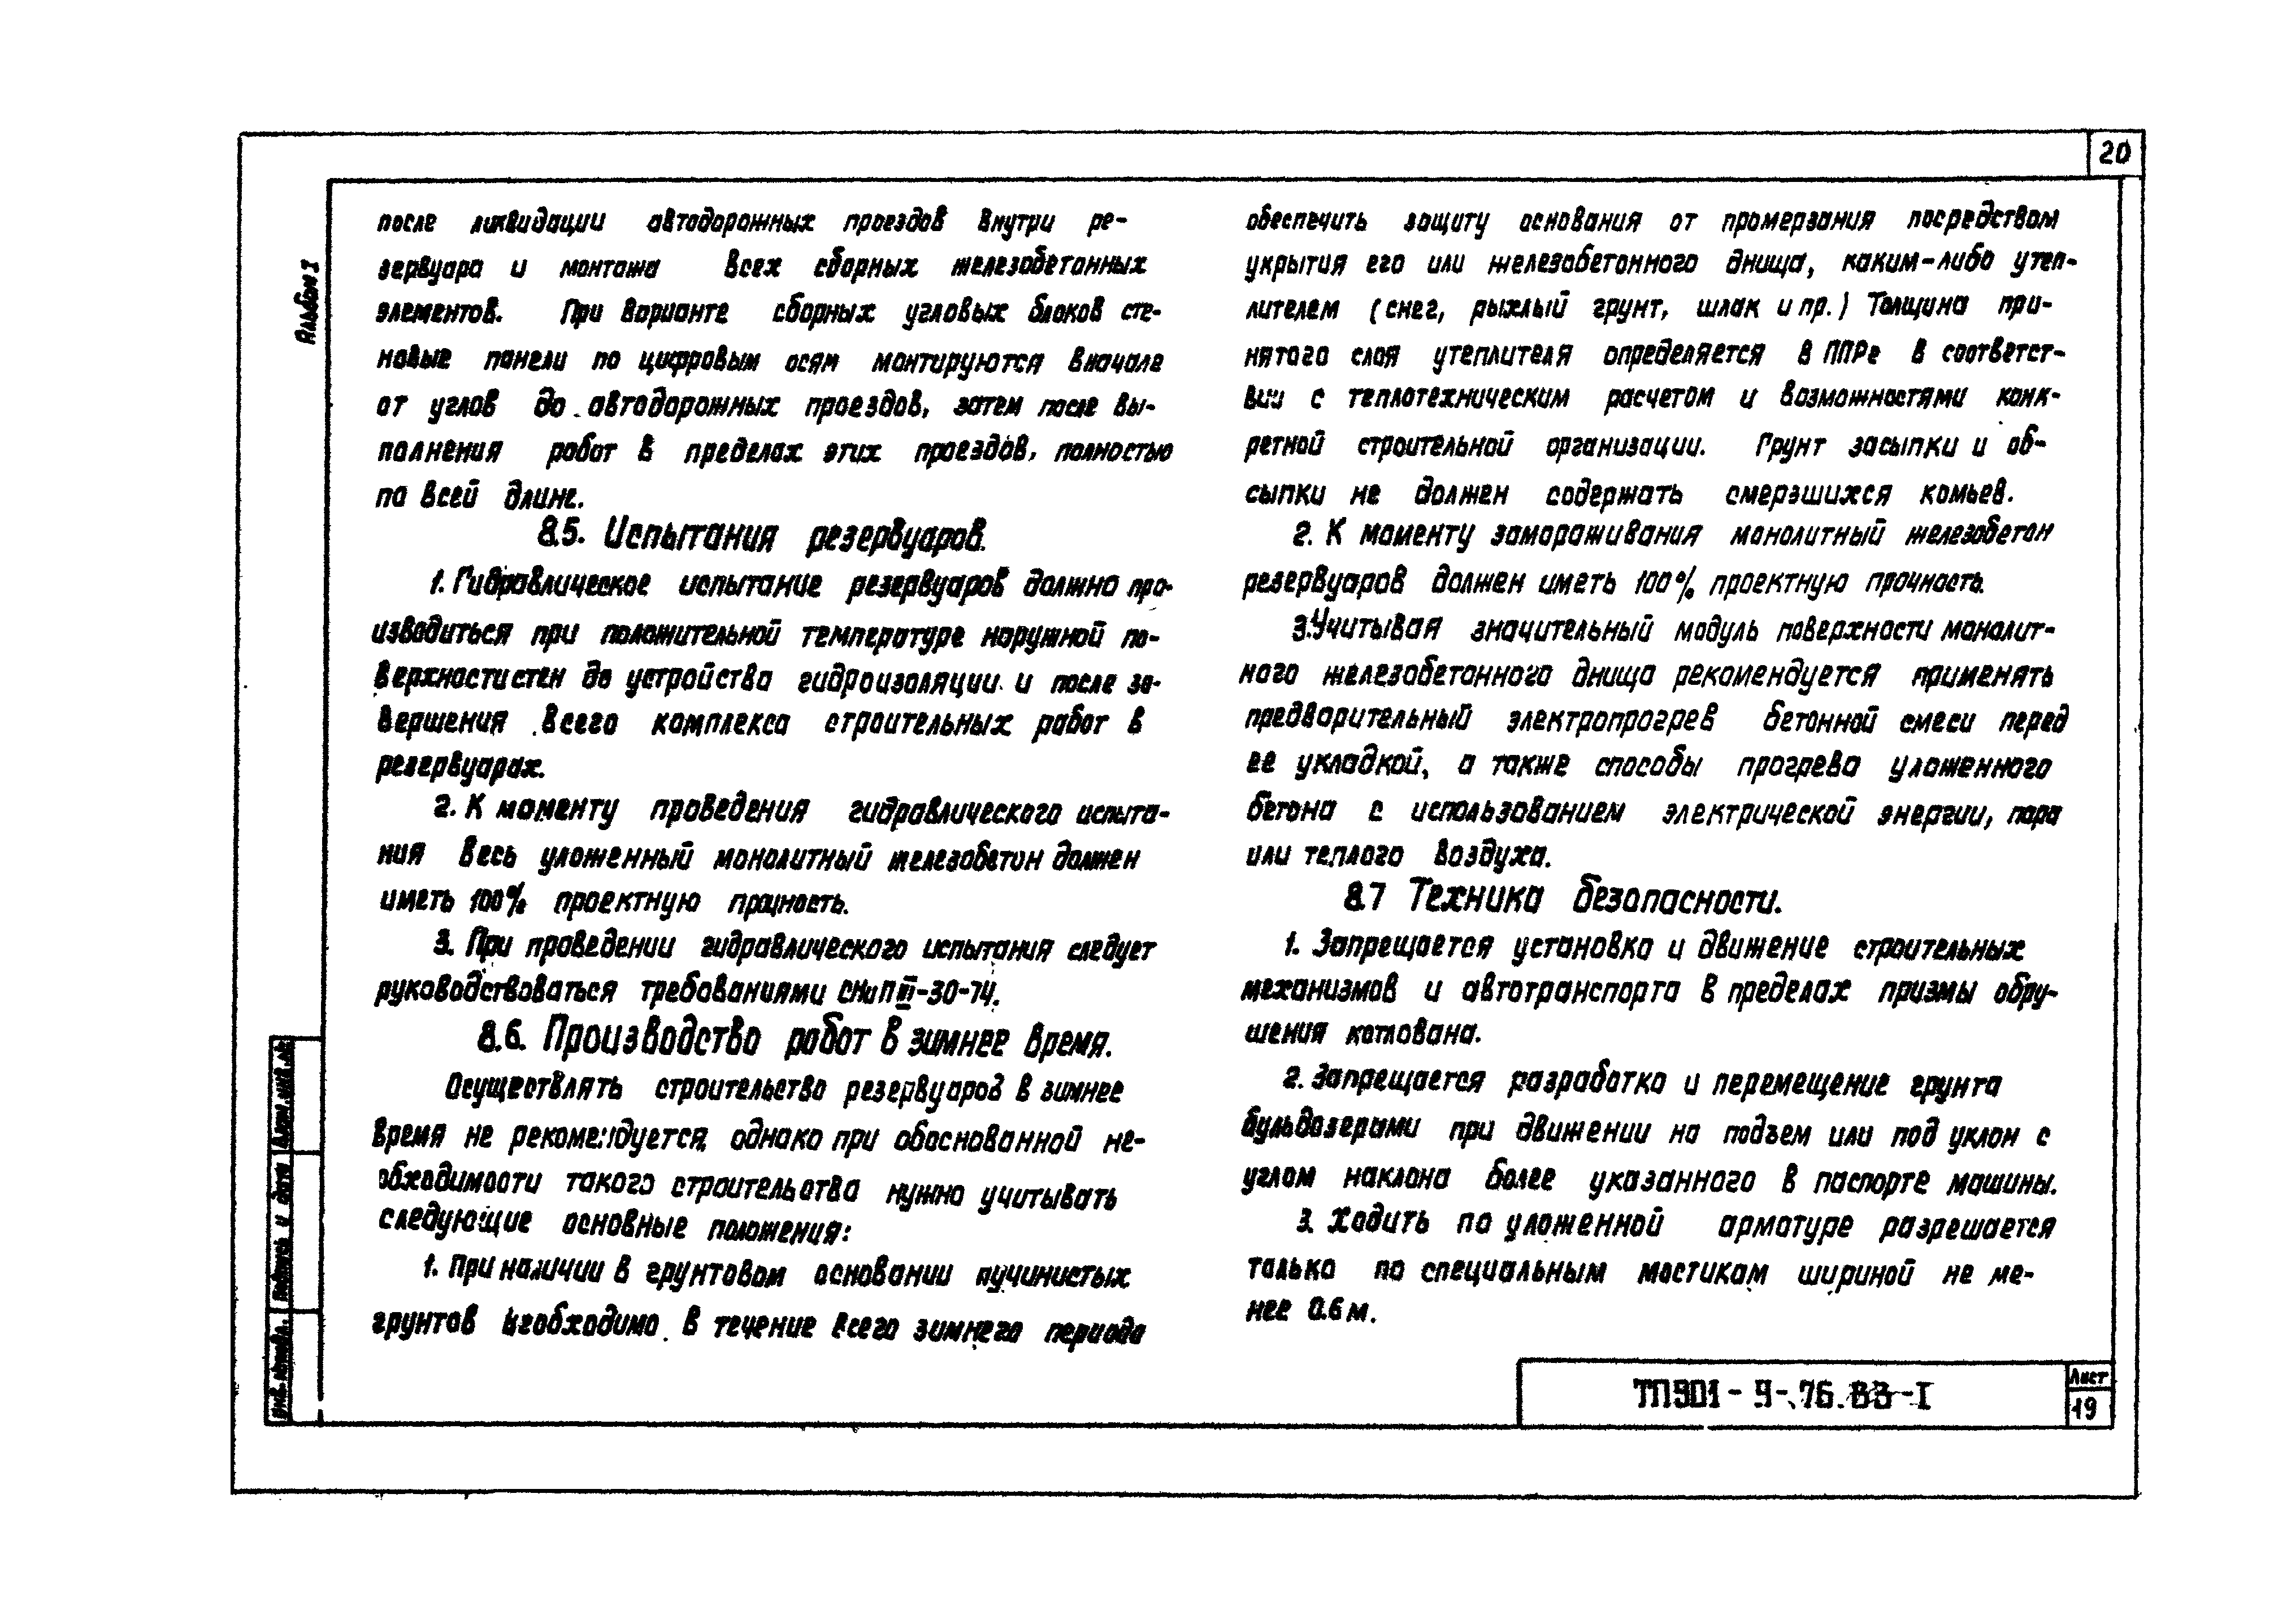 20
Альбом I
после ликвидации автодорожных проездов внутри ре-
зервуара и монтажа всех сборных железобетонных
элементов. При варианте сборных угловых блоков сте-
новые панели по цифровым осям монтируются вначале
от углов до автодорожных проездов, затем после вы-
полнения работ в пределах этих проездов, полностью
по всей длине.
8.5. Испытания резервуаров.
1. Гидравлическое испытание резервуаров должно про-
изводиться при положительной температуре наружной по-
верхности стен до устройства гидроизоляции и после за-
вершения всего комплекса строительных работ в
резервуарах.
2. К моменту проведения гидравлического испыта-
ния весь уложенный монолитный железобетон должен
иметь 100% проектную прочность.
3. При проведении гидравлического испытания следует
руководствоваться требованиями СНиП III-30-74.
8.6. Производство работ в зимнее время.
Осуществлять строительство резервуаров в зимнее
время не рекомендуется, однако при обоснованной не-
обходимости такого строительства нужно учитывать
следующие основные положения:
1. При наличии в грунтовом основании пучинистых
грунтов необходимо в течение всего зимнего периода
обеспечить защиту основания от промерзания посредством
укрытия его или железобетонного днища, каким-либо утеп-
лителем (снег, рыхлый грунт, шлак и пр.) Толщина при-
нятого слоя утеплителя определяется в ППРе в соответст-
вии с теплотехническим расчетом и возможностями конк-
ретной строительной организации. Грунт засыпки и об-
сыпки не должен содержать смерзшихся комьев.
2. К моменту замораживания монолитный железобетон
резервуаров должен иметь 100% проектную прочность.
3. Учитывая значительный модуль поверхности монолит-
ного железобетонного днища рекомендуется применять
предварительный электропрогрев бетонной смеси перед
ее укладкой, а также способы прогрева уложенного
бетона с использованием электрической энергии, пара
или теплого воздуха.
8.7 Техника безопасности.
1. Запрещается установка и движение строительных
механизмов и автотранспорта в пределах призмы обру-
шения котлована.
2. Запрещается разработка и перемещение грунта
бульдозерами при движении на подъем или под уклон с
углом наклона более указанного в паспорте машины.
3. Ходить по уложенной арматуре разрешается
только по специальным мостикам шириной не ме-
нее 0.6 м.
Инв. № подл. Подпись и дата Взам. инв. №
ТП 901-9-76.83-I
Лист
19